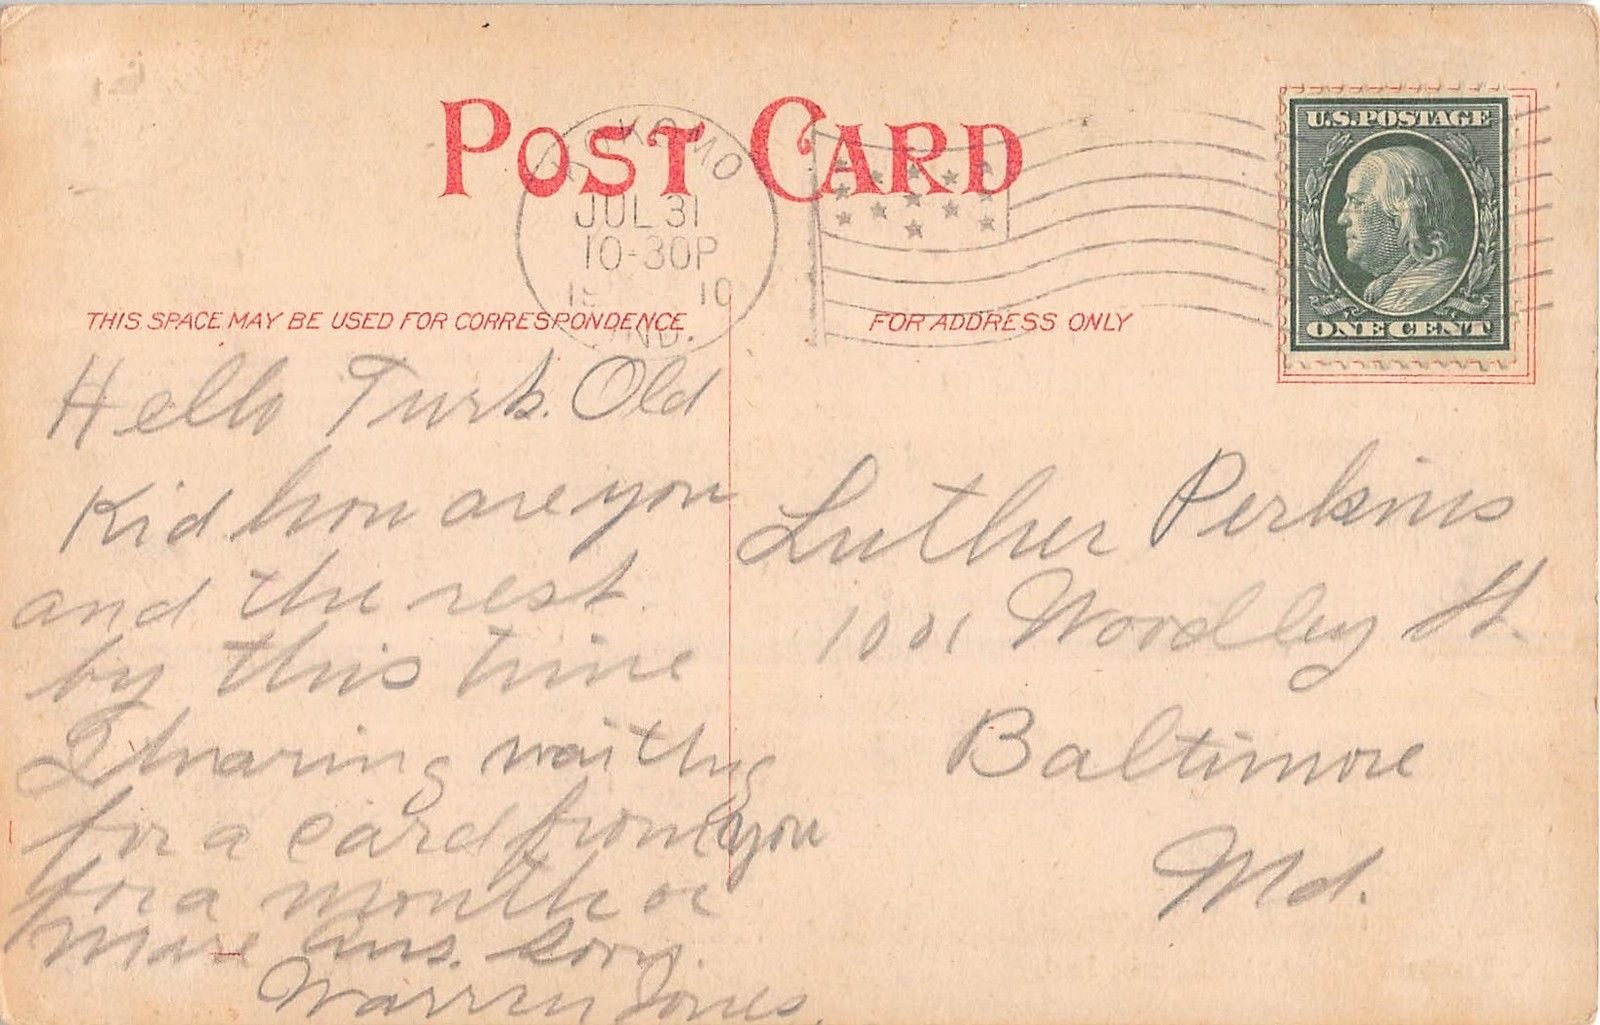 POST CARD
KOKOMO
JUL 31
10-30P
19 10
IND.
U.S.POSTAGE
ONE CENT
THIS SPACE MAY BE USED FOR CORRESPONDENCE
FOR ADDRESS ONLY
Hello Turk. Old
Kid how are you
and the rest.
by this time
I waiting
for a card from you
for a month or
more ans. soon.
Warren Jones.
Luther Perkins
1001 Woodley St.
Baltimore
Md.